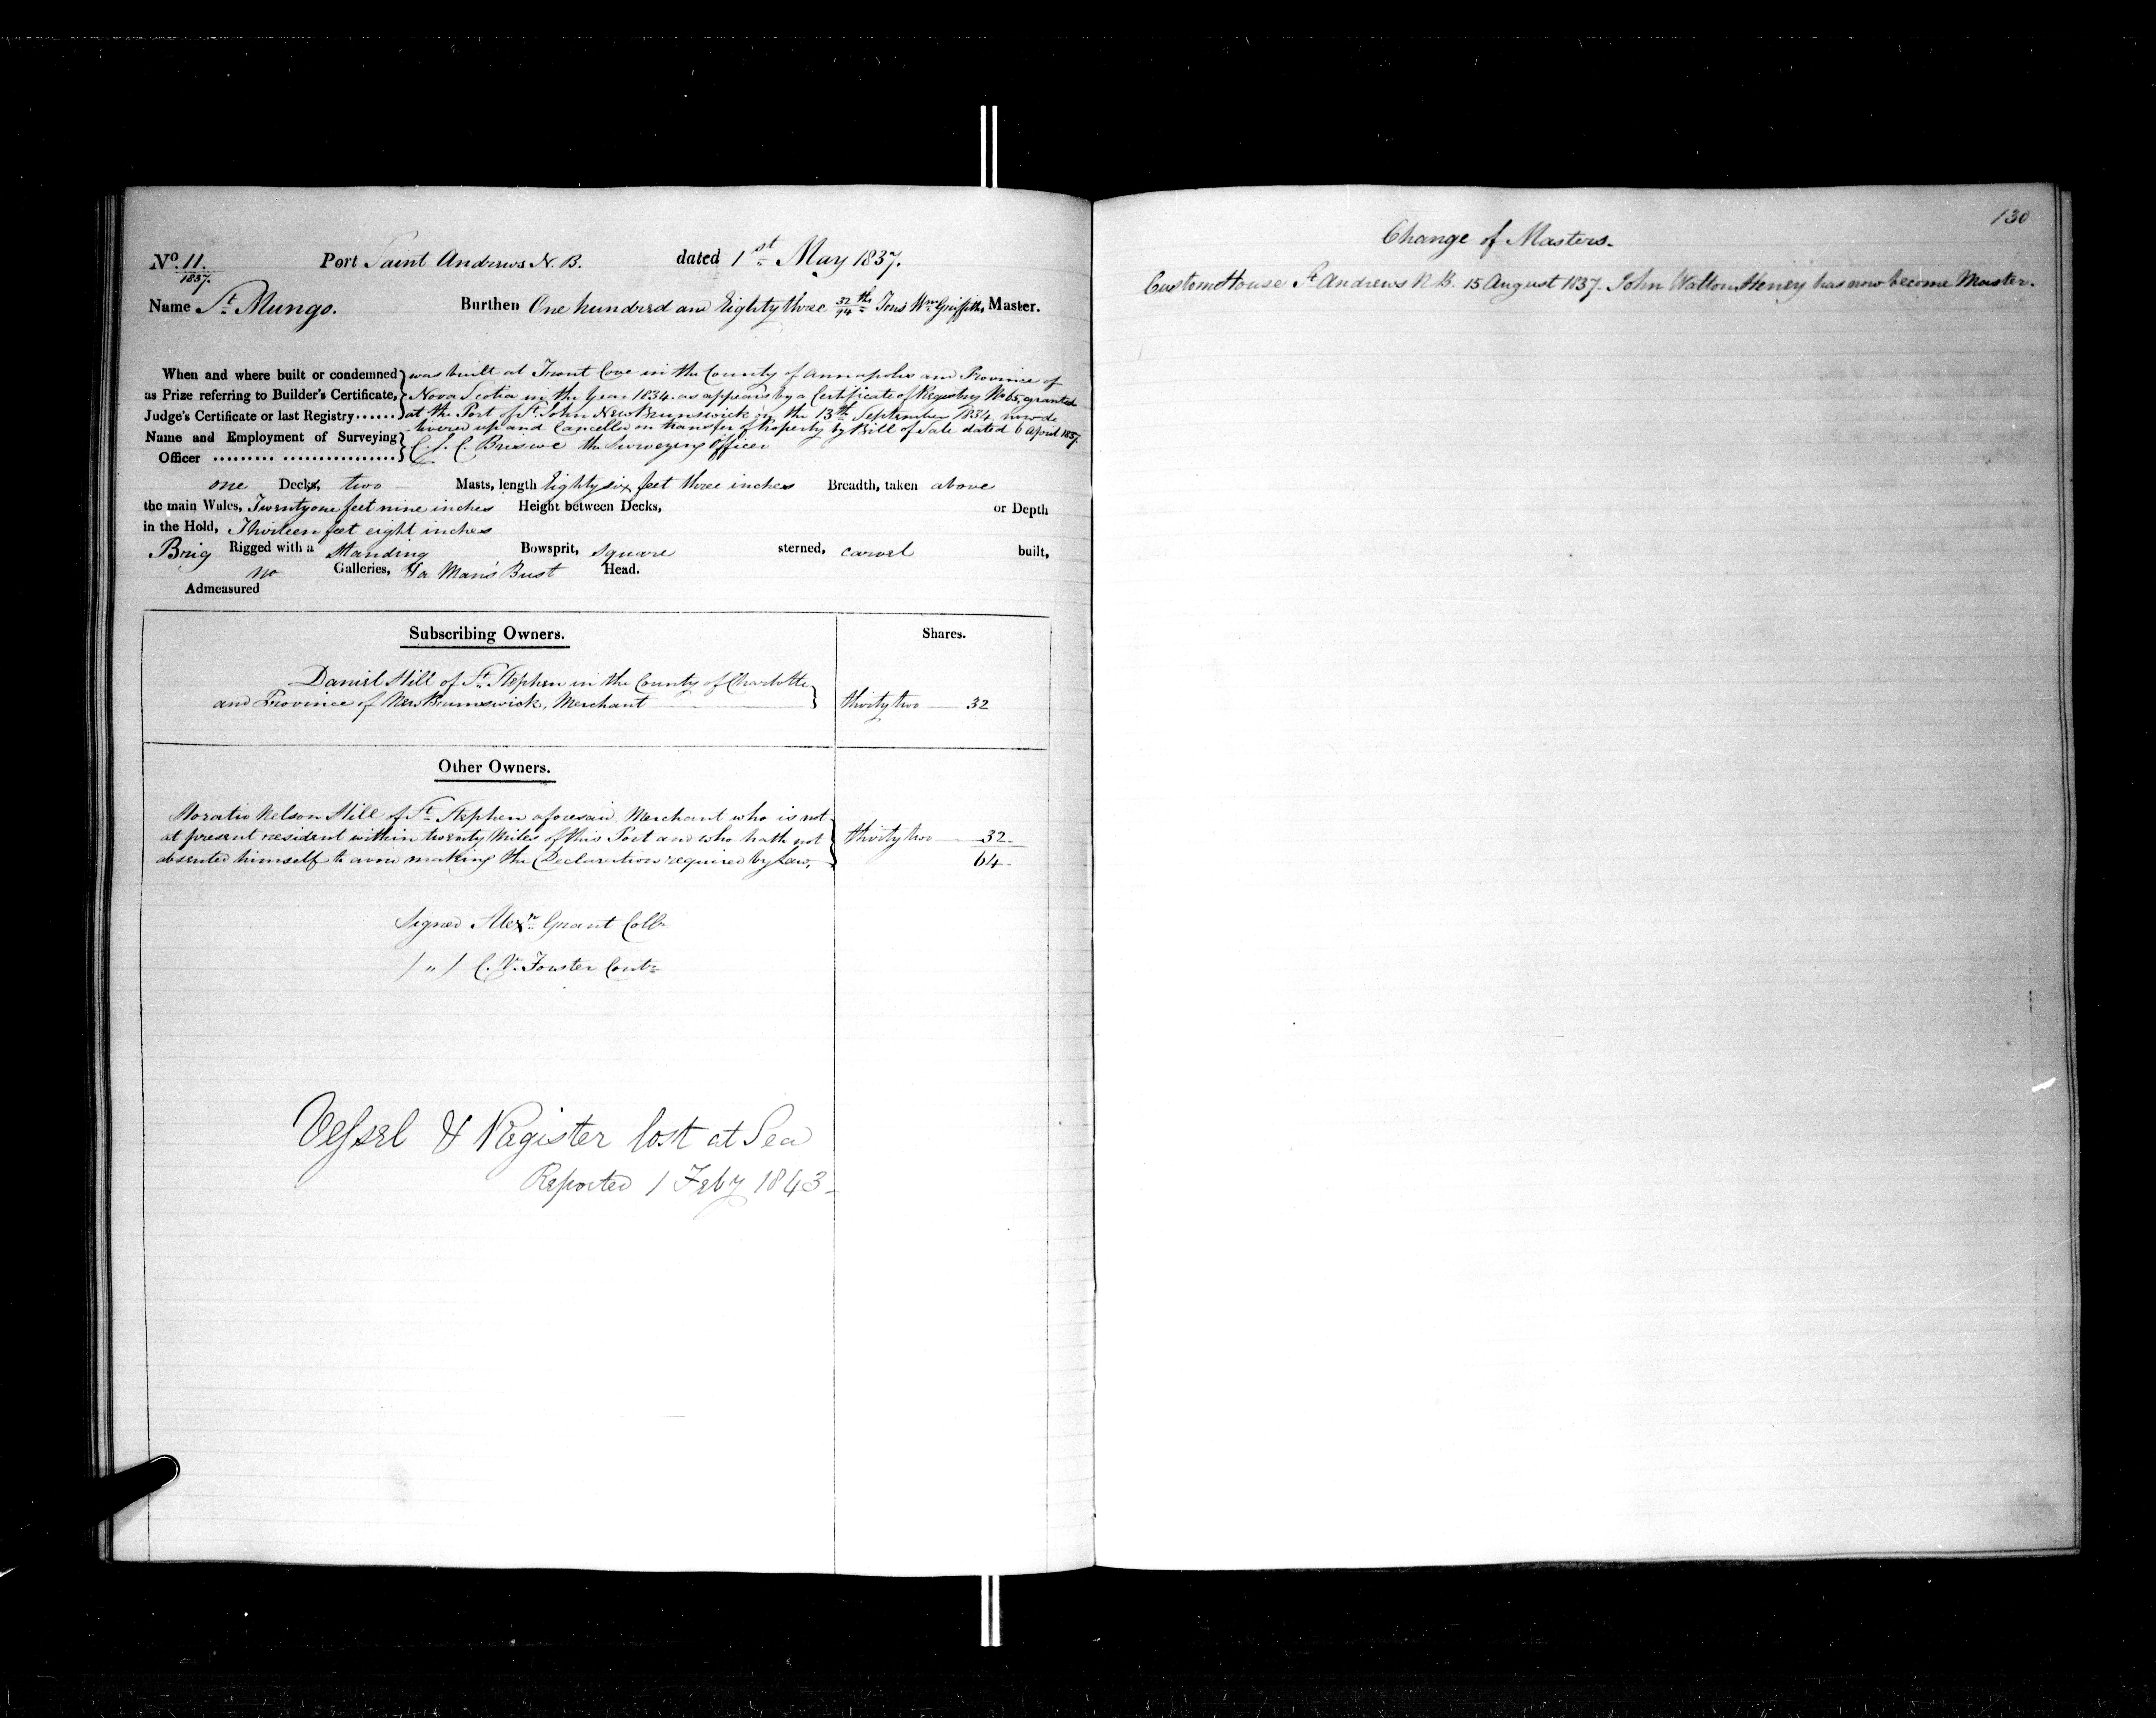 No. 11. Port Saint Andrews N. B. dated 1st May 1837.
1837.
Name St. Mungo. Burthen One hundred and Eighty three 32/94 ths Tons Wm. Griffiths Master.
When and where built or condemned was built at Trout Cove in the County of Annapolis and Province of
as Prize referring to Builder's Certificate, Nova Scotia in the Year 1834. as appears by a Certificate of Registry No 65, granted
Judge's Certificate or last Registry...... at the Port of St. John New Brunswick on the 13th September 1834, now de
livered up and Cancelled on transfer of Property by Bill of Sale dated 6 April 1837.
Name and Employment of Surveying C. S. C. Briscoe the Surveying Officer
Officer ......... ................
one Decks, two Masts, length Eighty six feet three inches Breadth, taken above
the main Wales, Twenty one feet nine inches Height between Decks, or Depth
in the Hold, Thirteen feet eight inches
Brig Rigged with a Standing Bowsprit, square sterned, carvel built,
no Galleries, & a Man's Bust Head.
Admeasured
Subscribing Owners. Shares.
Daniel Hill of St. Stephen in the County of Charlotte
and Province of New Brunswick, Merchant thirty two 32
Other Owners.
Horatio Nelson Hill of St. Stephen aforesaid Merchant who is not
at present resident within twenty Miles of this Port and who hath not thirty two 32.
absented himself to avoid making the Declaration required by Law, 64
Signed Alexr. Grant Collr
/ " / C. V. Forster Contr
Vessel & Register lost at Sea
Reported 1 Feby 1843
130
Change of Masters.
Custom House St Andrews N B. 15 August 1837. John Walton Heney has now become Master.